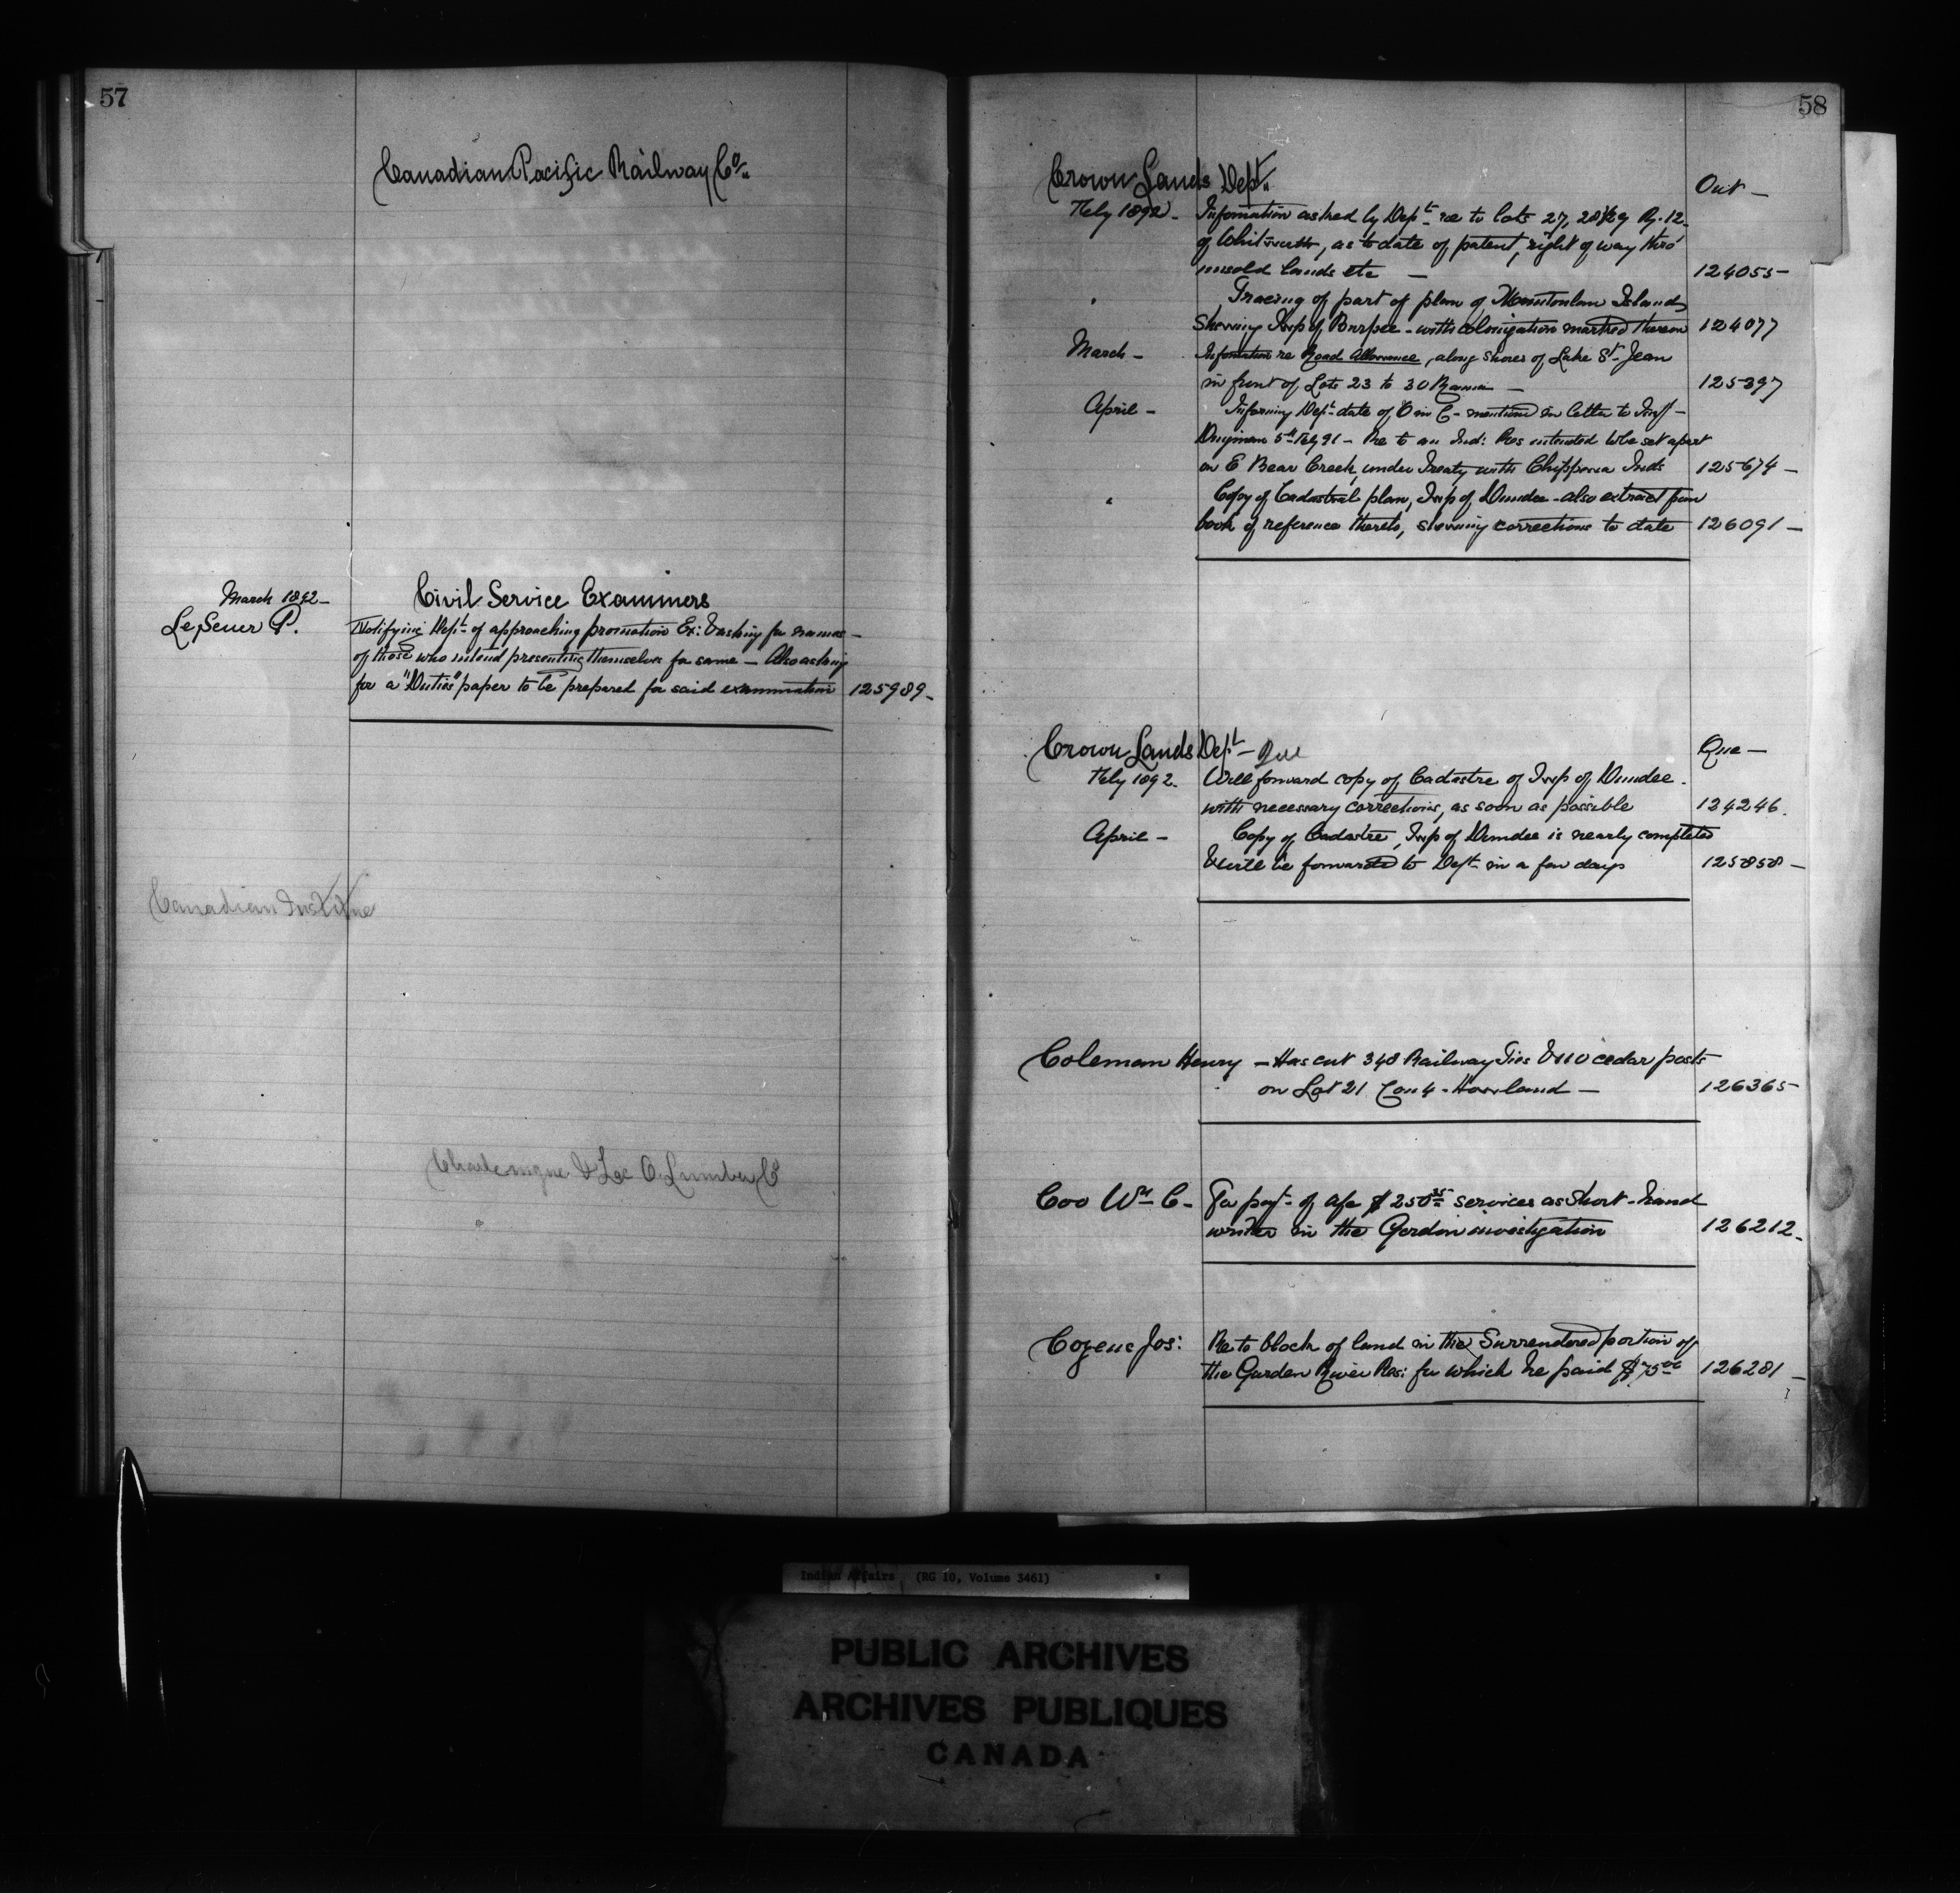 57
Canadian Pacific Railway Co.
March 1892 -
Civil Service Examiners
LeSeuer P.
Notifying Dept. of approaching promotion Ex: & asking for names -
of those who intend presenting themselves for same - Also asking
for a "Duties" paper to be prepared for said examination 125989 -
Canadian Institute
& Lumber Co
58
Crown Lands Dept. Ont -
Feby 1892 - Information asked by Dept. re to lots 27, 28 & 29 Rg. 12
of Whitworth, as to date of patent, right of way thro'
unsold lands etc - 124055 -
" Tracing of part of plan of Manitoulin Island
shewing Twp of Burpee - with colonization marked thereon 124077
March - Information re Road Allowance, along shores of Lake St. Jean
in front of Lots 23 to 30 - 125397
April - Informing Dept. date of O in C - mentioned in letter to
5th Feby 91 - Re to an Ind: Res intended to be set apart
on E Bear Creek, under Treaty with Chippewa Inds 125674 -
" Copy of Cadastral plan, Twp of Dundee - also extract from
book of reference thereto, shewing corrections to date 126091 -
Crown Lands Dept - Que Que -
Feby 1892. Will forward copy of Cadastre of Twp of Dundee -
with necessary corrections, as soon as possible 124246.
April - Copy of Cadastre, Twp of Dundee is nearly completed
& will be forwarded to Dept. in a few days 125858 -
Coleman Henry - Has cut 348 Railway Ties & 110 cedar posts
on Lot 21 Con 4 - Howland - 126365
Coo Wm C - For payt. of a/c $ services as Short-hand
writer in the Gordon investigation 126212 -
Cozens Jos: Re to block of land in the Surrendered portion of
the Garden River Res: for which he paid 126281 -
Indian Affairs (RG 10, Volume 3461)
PUBLIC ARCHIVES
ARCHIVES PUBLIQUES
CANADA